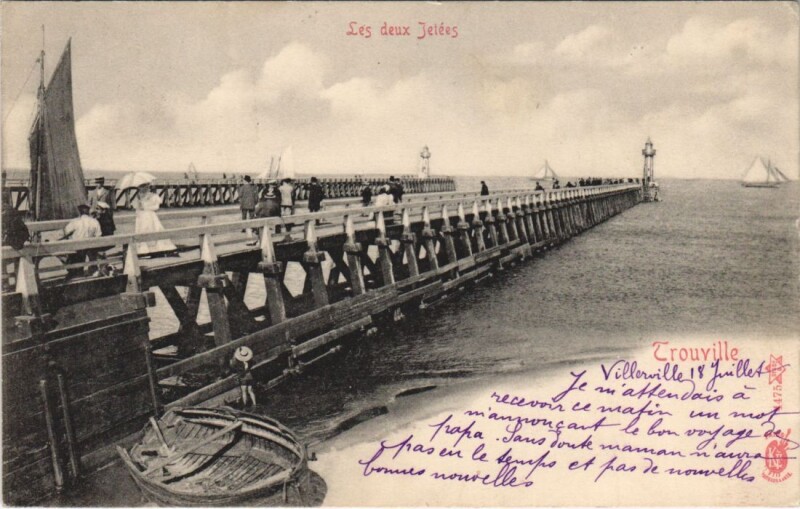 Les deux Jetées
Trouville
1475
Villerville 18 Juillet
Je m'attendais à
recevoir ce matin un mot
m'annonçant le bon voyage de
papa. Sans doute maman n'aura
pas eu le temps et pas de nouvelles
bonnes nouvelles